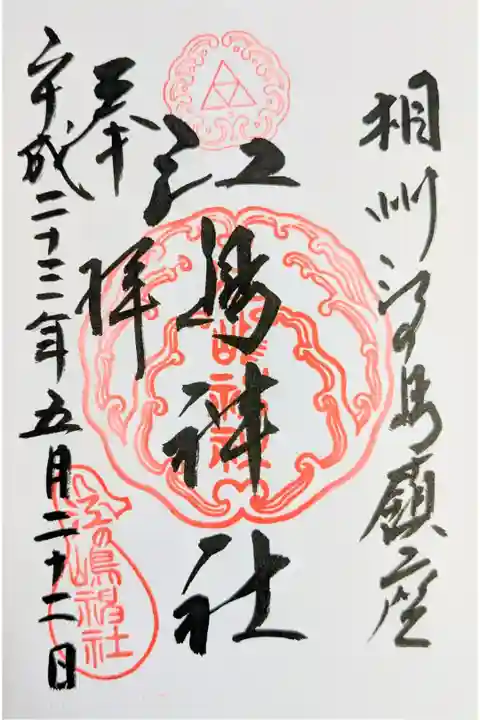 相州江の島鎮座
奉拝
江島神社
平成二十三年五月二十二日
江嶋神社
江の嶋神社